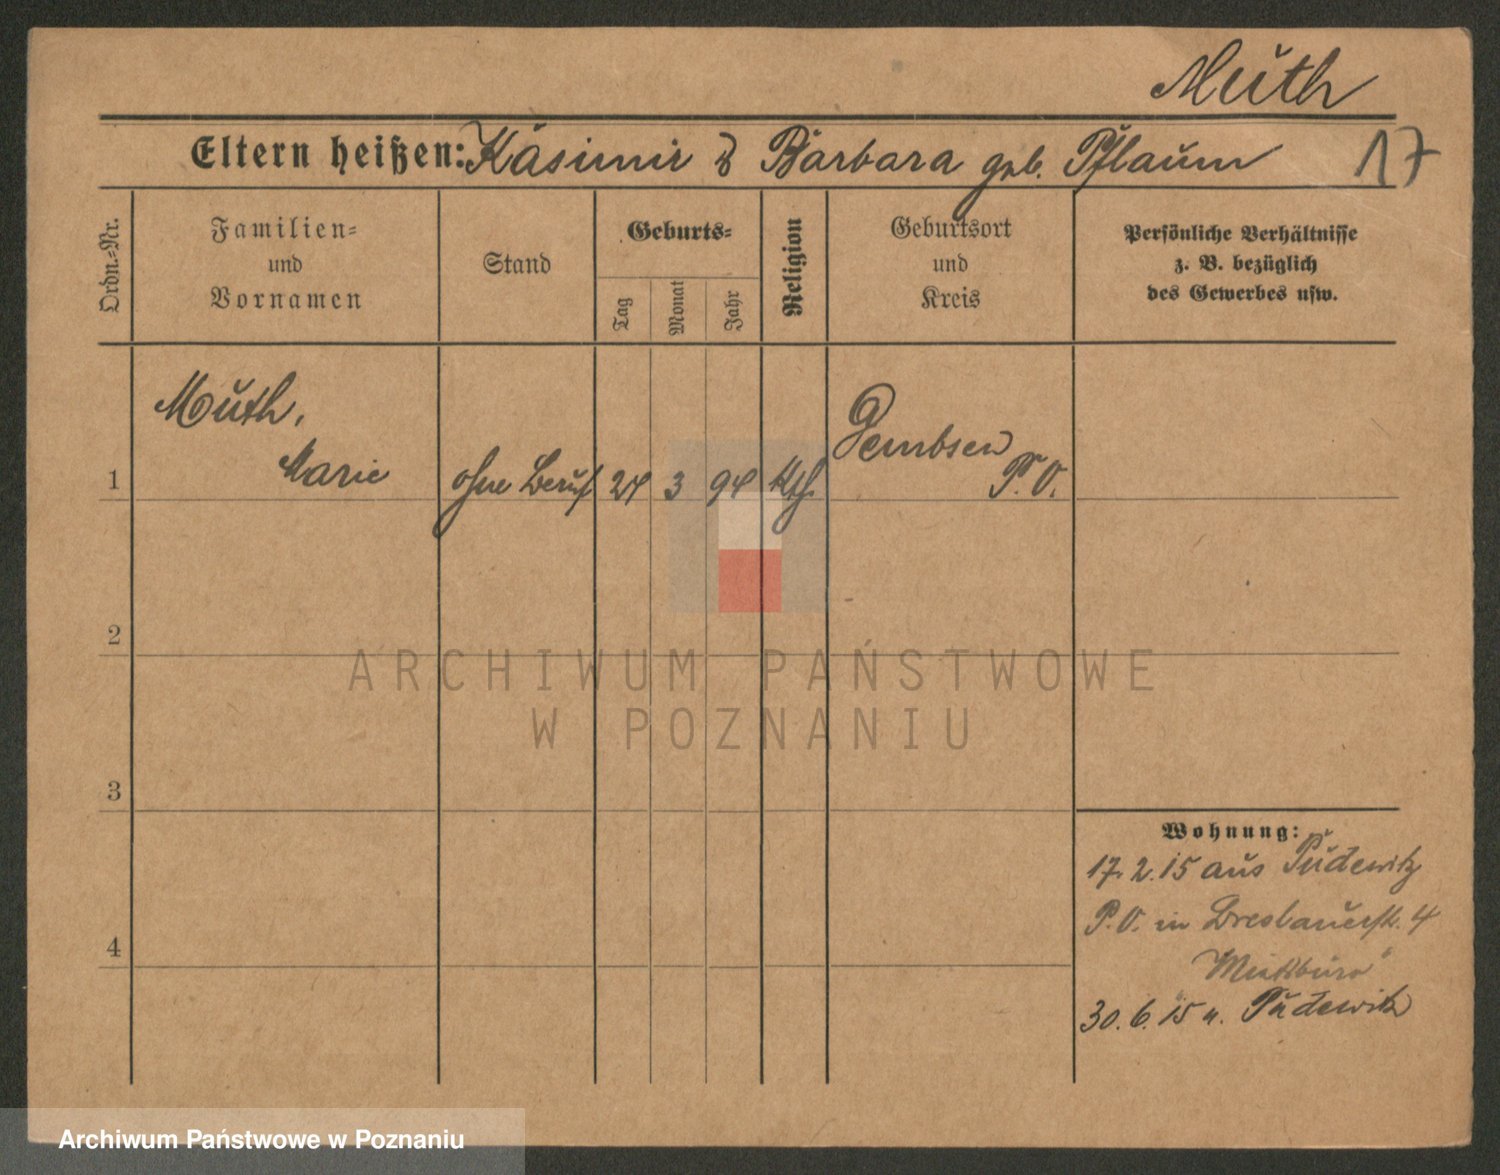 Muth
Eltern heißen: Kasimir & Barbara geb. Pflaum 17
Ordn.-Nr.
Familien-
und
Vornamen
Stand
Geburts-
Tag
Monat
Jahr
Religion
Geburtsort
und
Kreis
Persönliche Verhältnisse
z. B. bezüglich
des Gewerbes usw.
Muth,
Marie
1
ohne Beruf 24 3 94 Kth.
Gembsen
P. O.
2
3
4
ARCHIWUM PAŃSTWOWE
W POZNANIU
Wohnung:
17.2.15 aus Pudewitz
P. O. in Breslauerstr. 4
30.6.15 n. Pudewitz
Archiwum Państwowe w Poznaniu